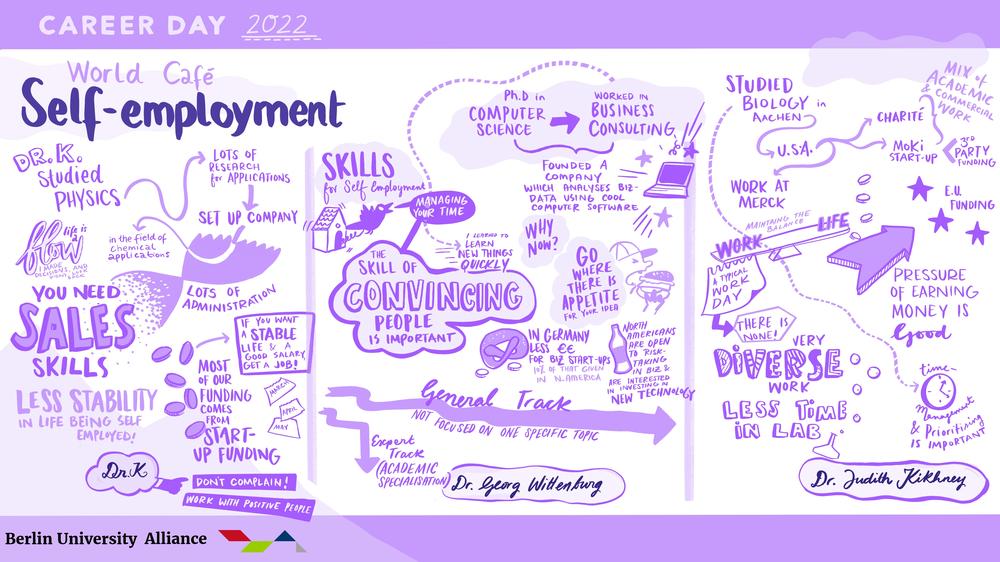 CAREER DAY 2022
World Café
Self-employment
DR. K.
Studied
PHYSICS
LOTS OF
RESEARCH
for APPLICATIONS
SET UP COMPANY
in the field of
chemical
applications
life is
flow
MADE
DECISIONS, AND
LOTS OF
ADMINISTRATION
YOU NEED
SALES
SKILLS
IF YOU WANT
A STABLE
LIFE & A
GOOD SALARY,
GET A JOB!
MOST
OF OUR
FUNDING
COMES
FROM
START-
UP FUNDING
MARCH
APRIL
MAY
LESS STABILITY
IN LIFE BEING SELF
EMPLOYED!
Dr. K
DON'T COMPLAIN!
WORK WITH POSITIVE PEOPLE
SKILLS
for Self Employment
MANAGING
YOUR TIME
THE
SKILL OF
CONVINCING
PEOPLE
IS IMPORTANT
I LEARNED TO
LEARN
NEW THINGS
QUICKLY
Ph.D in
COMPUTER
SCIENCE
WORKED IN
BUSINESS
CONSULTING
FOUNDED A
COMPANY
WHICH ANALYSES BIZ-
DATA USING COOL
COMPUTER SOFTWARE
WHY
NOW?
GO
WHERE
THERE IS
APPETITE
FOR YOUR IDEA
IN GERMANY
LESS €€
FOR BIZ START-UPS
10% OF THAT GIVEN
IN N.AMERICA
NORTH
AMERICANS
ARE OPEN
TO RISK-
TAKING
IN BIZ &
ARE INTERESTED
IN INVESTING IN
NEW TECHNOLOGY
General Track
NOT FOCUSED ON ONE SPECIFIC TOPIC
Expert
Track
(ACADEMIC
SPECIALISATION)
Dr. Georg Wittenburg
STUDIED
BIOLOGY in
AACHEN
U.S.A.
WORK AT
MERCK
CHARITÉ
MoKi
START-UP
MIX of
ACADEMIC
& COMMERCIAL
WORK
3RD
PARTY
FUNDING
E.U.
FUNDING
MAINTAINING THE
BALANCE
WORK
LIFE
A TYPICAL
WORK
DAY
THERE IS
NONE!
VERY
DIVERSE
WORK
LESS TIME
IN LAB
PRESSURE
OF EARNING
MONEY IS
good
time-
Management
& Prioritising
IS IMPORTANT
Dr. Judith Kikhney
Berlin University Alliance